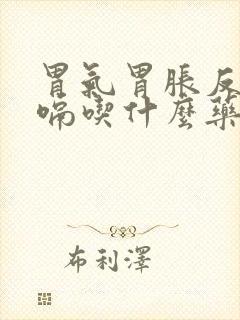 胃氣胃脹反
嗝喫什麼藥
布利澤